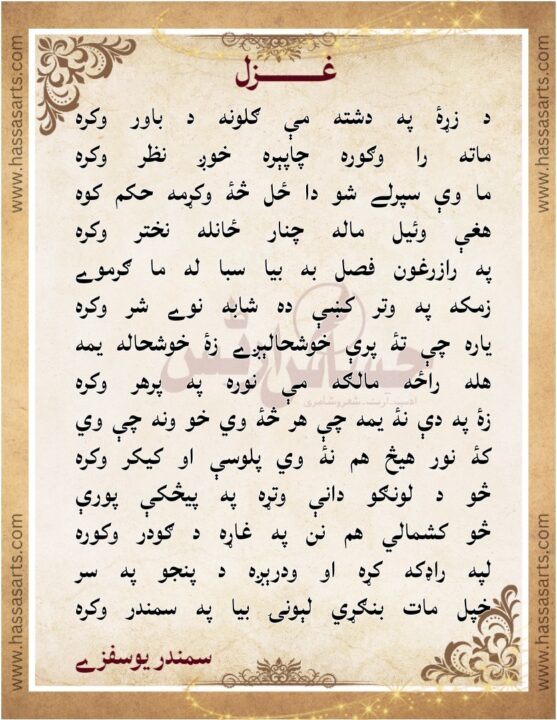 غـــــزل
د زړۀ په دشته مې ګلونه د باور وکره
ماته را وګوره چاپېره خوږ نظر وکره
ما وې سپرلے شو دا ځل څۀ وکړمه حکم کوه
هغې وئیل ماله چنار ځانله نختر وکره
په رازرغون فصل به بیا سبا له ما ګرموے
زمکه په وتر کښې ده شابه نوے شر وکره
یاره چې تۀ پرې خوشحالېږے زۀ خوشحاله یمه
هله راځه مالګه مې نوره په پرهر وکره
زۀ په دې نۀ یمه چې هر څۀ وي خو ونه چې وي
کۀ نور هیڅ هم نۀ وي پلوسې او کیکر وکره
څو د لونګو دانې وتړه په پیڅکې پورې
څو کشمالي هم نن په غاړه د ګودر وکوره
لپه راډکه کړه او ودرېږه د پنجو په سر
خپل مات بنګړي لېونۍ بیا په سمندر وکره
سمندر یوسفزے
حساس آرٹس
ادب۔آرٹ۔شعروشاعری
www.hassasarts.com
www.hassasarts.com
www.hassasarts.com
www.hassasarts.com